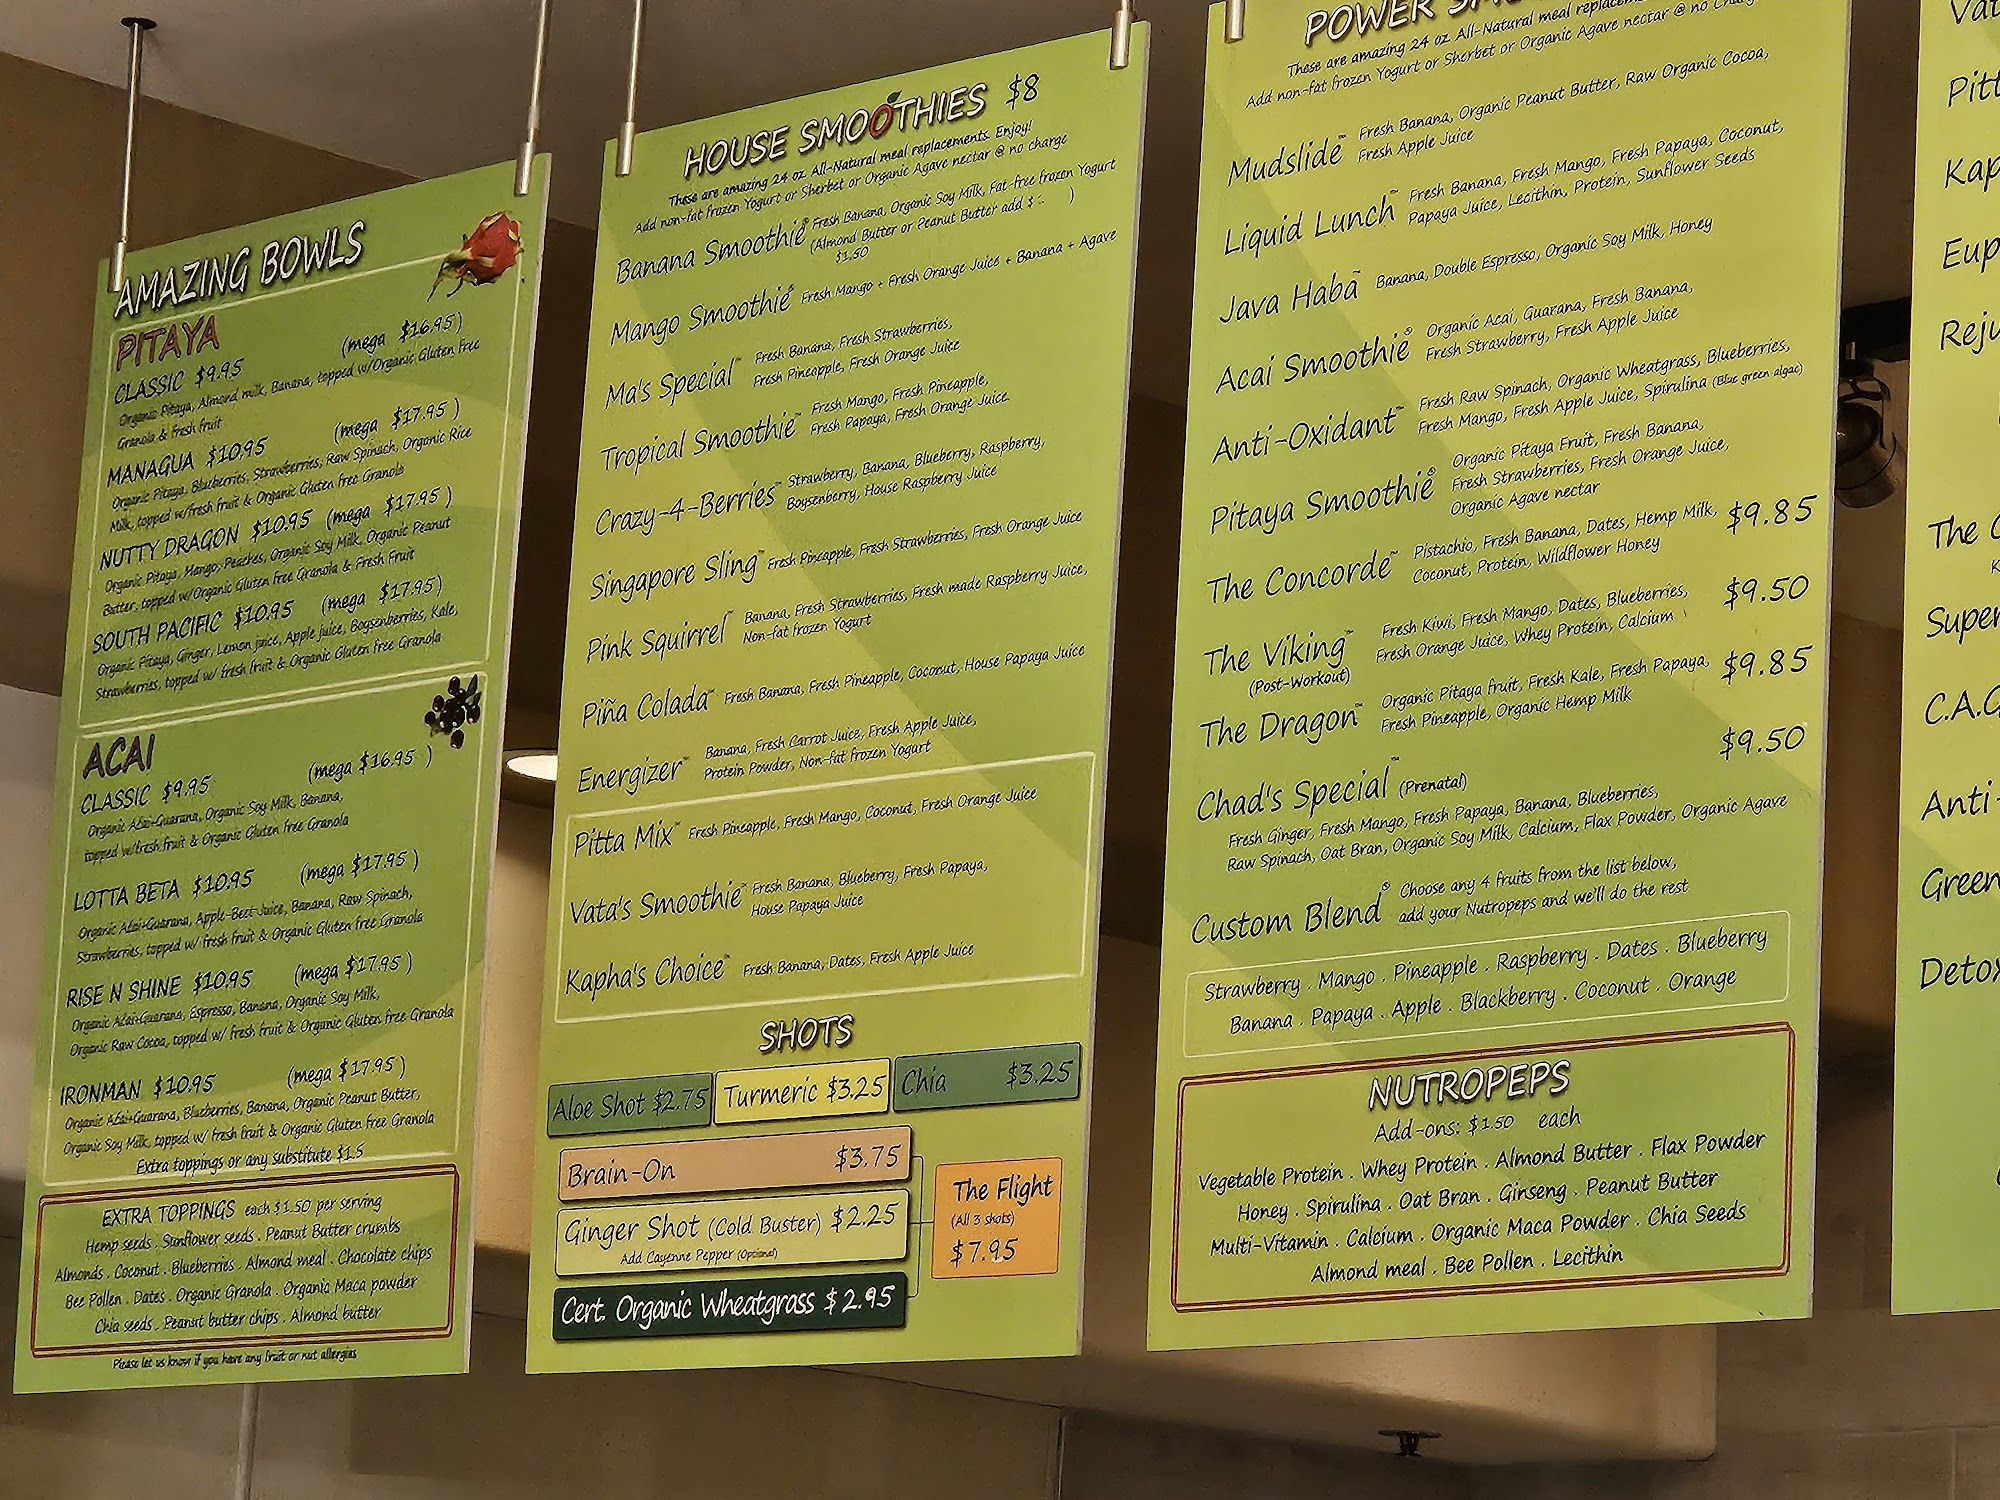 AMAZING BOWLS
PITAYA
CLASSIC $9.95 (mega $16.95)
Organic Pitaya, Almond milk, Banana, topped w/Organic Gluten Free
Granola & fresh fruit
MANAGUA $10.95 (mega $17.95)
Organic Pitaya, Blueberries, Strawberries, Raw Spinach, Organic Rice
Milk, topped w/fresh fruit & Organic Gluten free Granola
NUTTY DRAGON $10.95 (mega $17.95)
Organic Pitaya, Mango, Peaches, Organic Soy Milk, Organic Peanut
Butter, topped w/Organic Gluten free Granola & Fresh Fruit
SOUTH PACIFIC $10.95 (mega $17.95)
Organic Pitaya, Ginger, Lemon juice, Apple juice, Boysenberries, Kale,
Strawberries, topped w/ fresh fruit & Organic Gluten free Granola
ACAI
CLASSIC $9.95 (mega $16.95)
Organic Acai-Guarana, Organic Soy Milk, Banana,
topped w/fresh fruit & Organic Gluten free Granola
LOTTA BETA $10.95 (mega $17.95)
Organic Acai-Guarana, Apple-Beet-Juice, Banana, Raw Spinach,
Strawberries, topped w/ fresh fruit & Organic Gluten free Granola
RISE N SHINE $10.95 (mega $17.95)
Organic Acai-Guarana, Espresso, Banana, Organic Soy Milk,
Organic Raw Cocoa, topped w/ fresh fruit & Organic Gluten free Granola
IRONMAN $10.95 (mega $17.95)
Organic Acai-Guarana, Blueberries, Banana, Organic Peanut Butter,
Organic Soy Milk, topped w/ fresh fruit & Organic Gluten free Granola
Extra toppings or any substitute $1.5
EXTRA TOPPINGS each $1.50 per serving
Hemp seeds . Sunflower seeds . Peanut Butter crumbs
Almonds . Coconut . Blueberries . Almond meal . Chocolate chips
Bee Pollen . Dates . Organic Granola . Organic Maca powder
Chia seeds . Peanut butter chips . Almond butter
Please let us know if you have any fruit or nut allergies
HOUSE SMOOTHIES $8
These are amazing 24 oz All-Natural meal replacements. Enjoy!
Add non-fat frozen Yogurt or Sherbet or Organic Agave nectar @ no charge
Banana Smoothie® Fresh Banana, Organic Soy Milk, Fat-free frozen Yogurt
(Almond Butter or Peanut Butter add $ )
$1.50
Mango Smoothie® Fresh Mango + Fresh Orange Juice + Banana + Agave
Ma's Special™ Fresh Banana, Fresh Strawberries,
Fresh Pineapple, Fresh Orange Juice
Tropical Smoothie™ Fresh Mango, Fresh Pineapple,
Fresh Papaya, Fresh Orange Juice
Crazy-4-Berries™ Strawberry, Banana, Blueberry, Raspberry,
Boysenberry, House Raspberry Juice
Singapore Sling™ Fresh Pineapple, Fresh Strawberries, Fresh Orange Juice
Pink Squirrel™ Banana, Fresh Strawberries, Fresh made Raspberry Juice,
Non-fat frozen Yogurt
Piña Colada™ Fresh Banana, Fresh Pineapple, Coconut, House Papaya Juice
Energizer™ Banana, Fresh Carrot Juice, Fresh Apple Juice,
Protein Powder, Non-fat frozen Yogurt
Pitta Mix™ Fresh Pineapple, Fresh Mango, Coconut, Fresh Orange Juice
Vata's Smoothie™ Fresh Banana, Blueberry, Fresh Papaya,
House Papaya Juice
Kapha's Choice™ Fresh Banana, Dates, Fresh Apple Juice
SHOTS
Aloe Shot $2.75 Turmeric $3.25 Chia $3.25
Brain-On $3.75
Ginger Shot (Cold Buster) $2.25
Add Cayenne Pepper (Optional)
Cert. Organic Wheatgrass $2.95
The Flight
(All 3 shots)
$7.95
POWER
These are amazing 24 oz All-Natural meal
Add non-fat frozen Yogurt or Sherbet or Organic Agave nectar @ no
Mudslide™ Fresh Banana, Organic Peanut Butter, Raw Organic Cocoa,
Fresh Apple Juice
Liquid Lunch™ Fresh Banana, Fresh Mango, Fresh Papaya, Coconut,
Papaya Juice, Lecithin, Protein, Sunflower Seeds
Java Haba™ Banana, Double Espresso, Organic Soy Milk, Honey
Acai Smoothie® Organic Acai, Guarana, Fresh Banana,
Fresh Strawberry, Fresh Apple Juice
Anti-Oxidant™ Fresh Raw Spinach, Organic Wheatgrass, Blueberries,
Fresh Mango, Fresh Apple Juice, Spirulina (Blue green algae)
Pitaya Smoothie® Organic Pitaya Fruit, Fresh Banana,
Fresh Strawberries, Fresh Orange Juice,
Organic Agave nectar
The Concorde™ Pistachio, Fresh Banana, Dates, Hemp Milk, $9.85
Coconut, Protein, Wildflower Honey
The Viking™ Fresh Kiwi, Fresh Mango, Dates, Blueberries, $9.50
(Post-Workout) Fresh Orange Juice, Whey Protein, Calcium
The Dragon™ Organic Pitaya fruit, Fresh Kale, Fresh Papaya, $9.85
Fresh Pineapple, Organic Hemp Milk
Chad's Special™ (Prenatal) $9.50
Fresh Ginger, Fresh Mango, Fresh Papaya, Banana, Blueberries,
Raw Spinach, Oat Bran, Organic Soy Milk, Calcium, Flax Powder, Organic Agave
Custom Blend® Choose any 4 fruits from the list below,
add your Nutropeps and we'll do the rest
Strawberry . Mango . Pineapple . Raspberry . Dates . Blueberry
Banana . Papaya . Apple . Blackberry . Coconut . Orange
NUTROPEPS
Add-ons: $1.50 each
Vegetable Protein . Whey Protein . Almond Butter . Flax Powder
Honey . Spirulina . Oat Bran . Ginseng . Peanut Butter
Multi-Vitamin . Calcium . Organic Maca Powder . Chia Seeds
Almond meal . Bee Pollen . Lecithin
Pitt
Kap
Eup
Reju
The
Super
C.A.
Anti-
Green
Detox